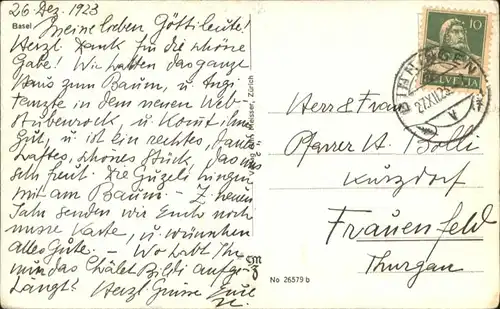 26 Dez. 1923
Basel
Meine lieben Göttileute!
Herzl. Dank für die schöne
Gabe! Wir hatten das ganze
Haus zum Baum, u. Angi
tanzte in dem neuen Web-
stubenrock, u. kommt ihm
gut, u. ist ein rechtes,
haftes, schönes Stück, das uns
sehr freut. Die Guzeli hingen
mit am Baum. - Z. neuen
Jahr senden wir Euch noch
unsre Karte, u. wünschen
alles Gute. - Wo habt Ihr
nun das Châlet Bildi aufge-
hängt? Herzl. Grüsse Eure
Zürich
10
HELVETIA
27.XII.23
V
Herr & Frau
Pfarrer A. Bolli
Kurzdorf
Frauenfeld
Thurgau
No 26579 b